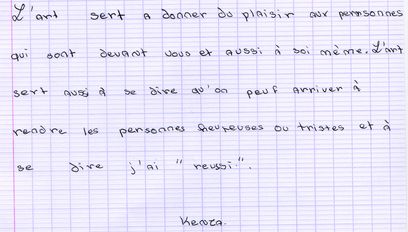 L'art sert a donner du plaisir aux permsonnes
qui sont devant vous et aussi à soi mème. L'art
sert aussi à se dire qu'on peuf arriver à
rendre les personnes heureuses ou tristes et à
se dire j'ai " reussi ".
Kenza.